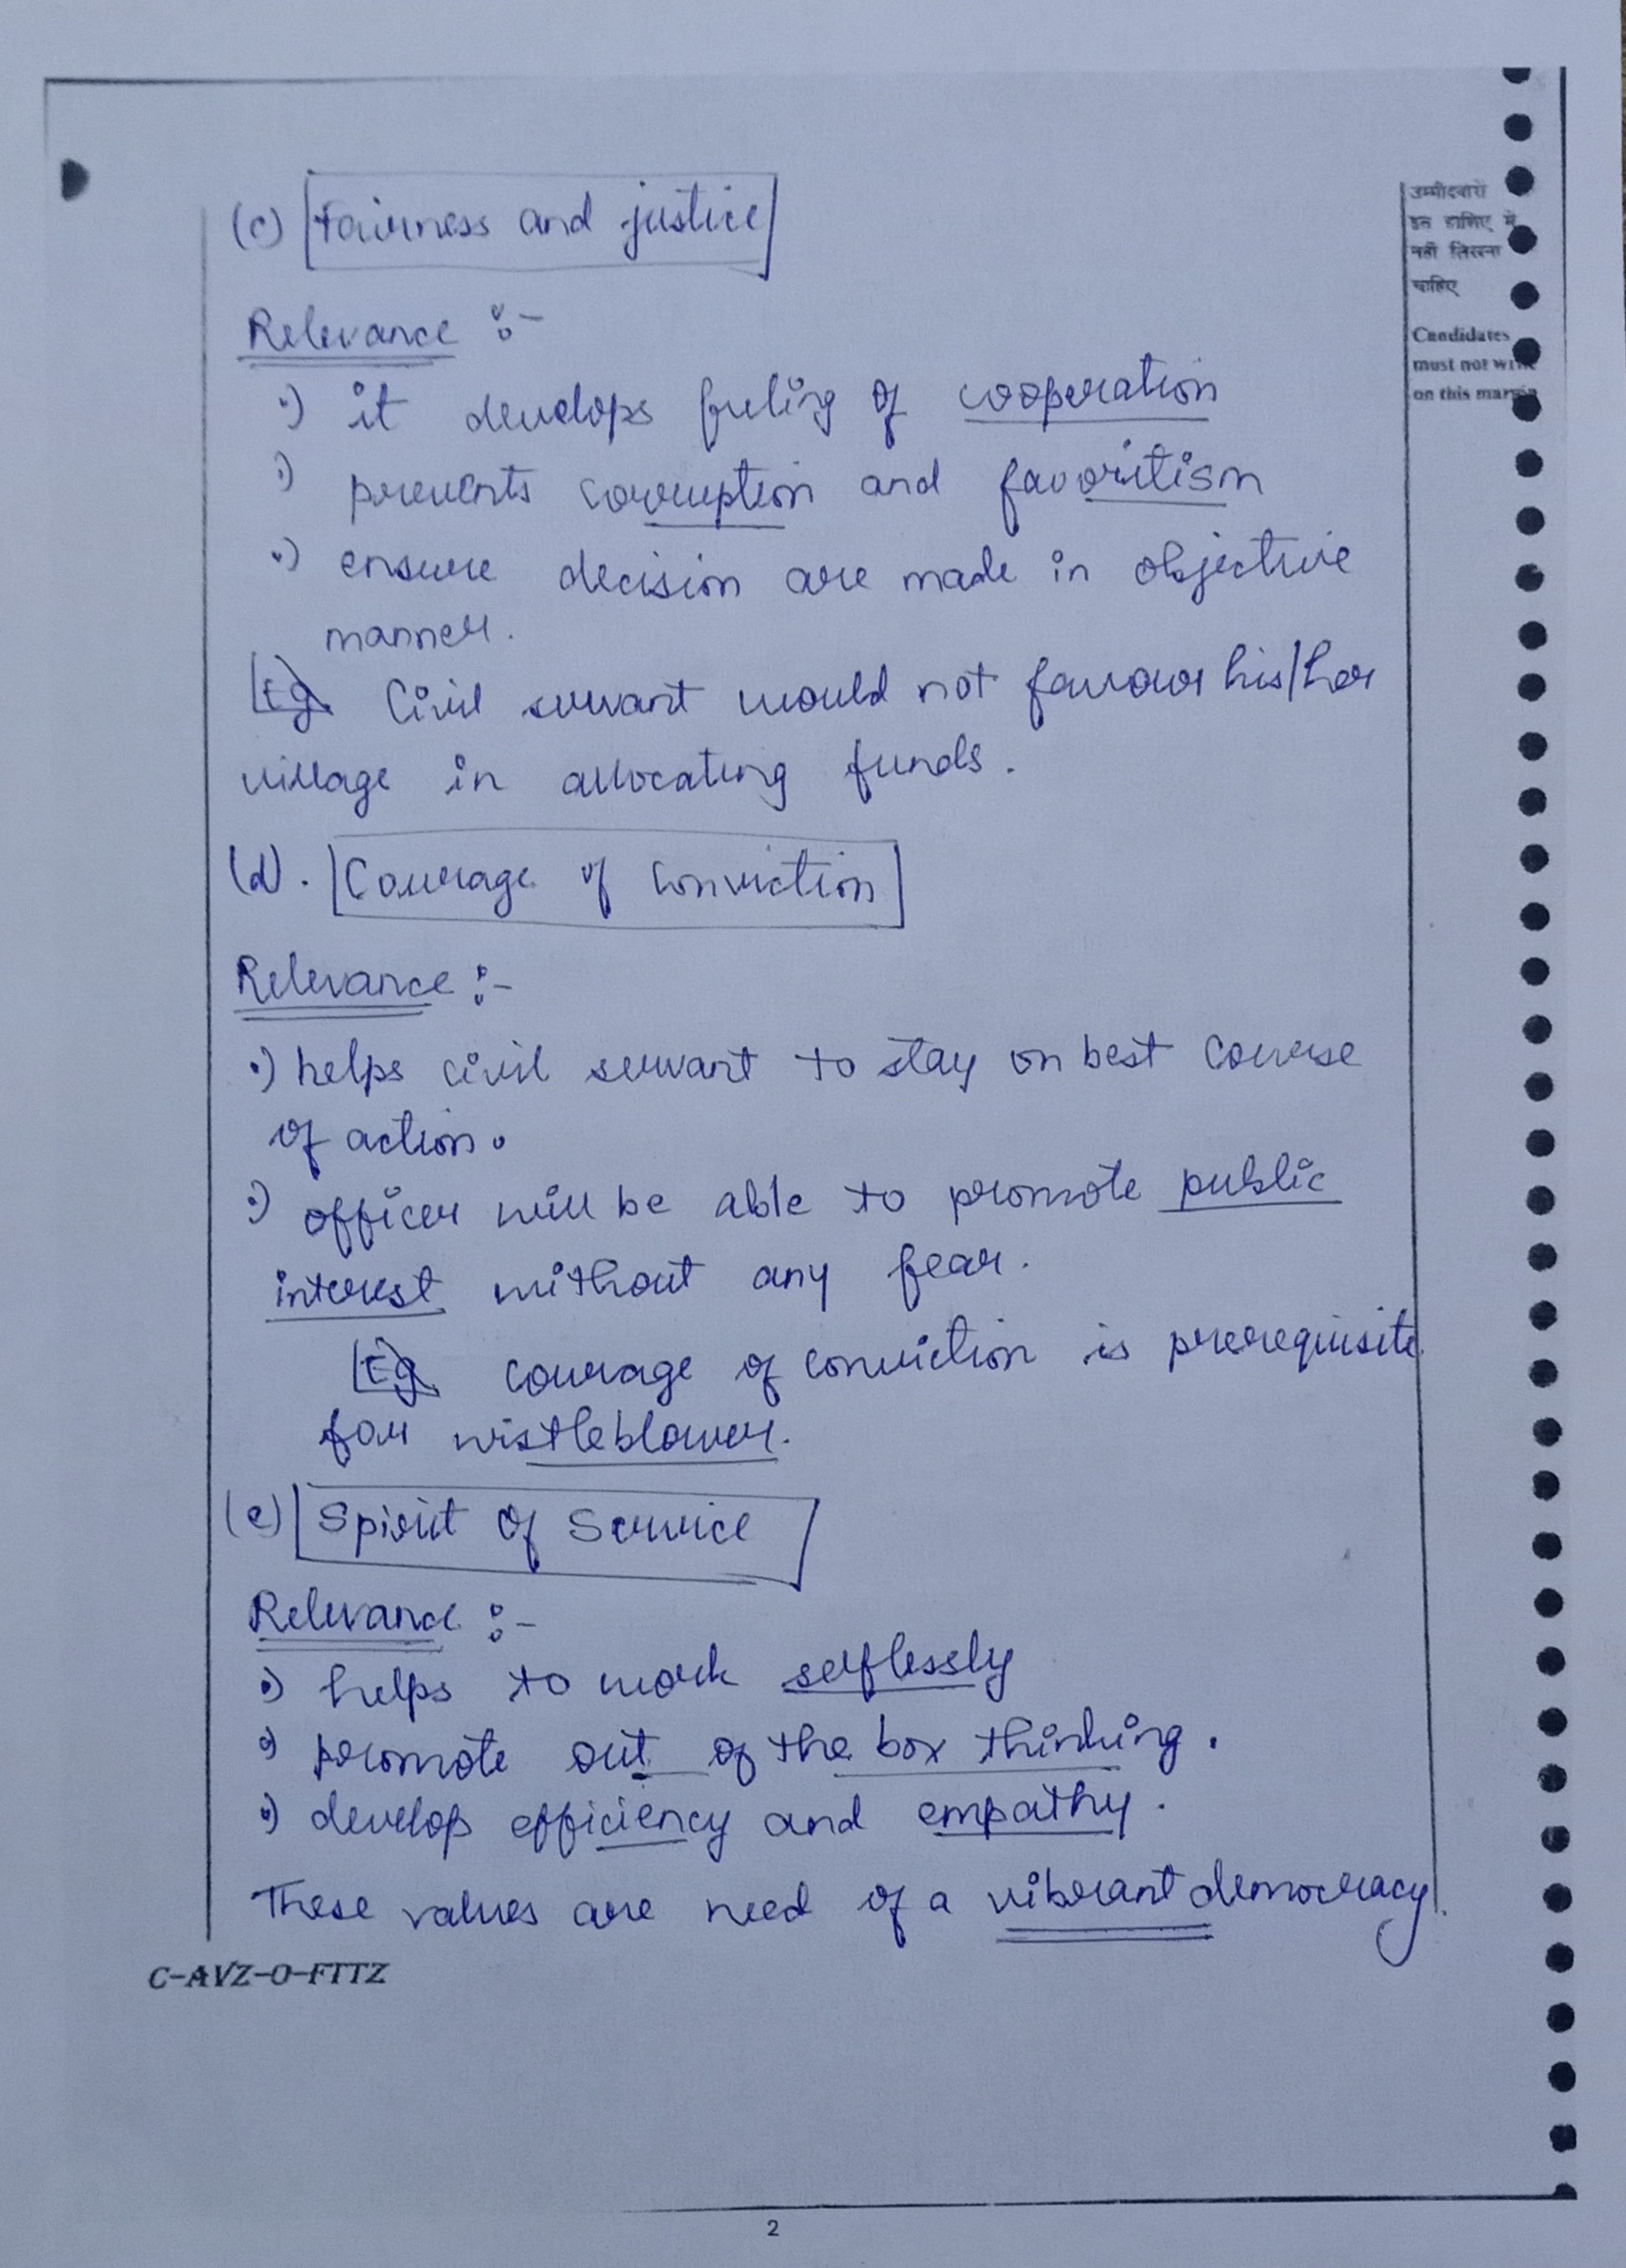 (c) Fairness and justice
उम्मीदवारों
इस हाशिए में
नहीं लिखना
चाहिए
Candidates
must not write
on this margin
Relevance :-
•) it develops feeling of cooperation
•) prevents corruption and favoritism
•) ensure decision are made in objective
manner.
Eg Civil servant would not favour his/her
village in allocating funds.
(d). Courage of conviction
Relevance :-
•) helps civil servant to stay on best course
of action.
•) officer will be able to promote public
interest without any fear.
Eg courage of conviction is prerequisite
for wistleblower.
(e) Spirit of Service
Relevance :-
•) helps to work selflessly
•) promote out of the box thinking.
•) develop efficiency and empathy.
These values are need of a vibrant democracy.
C-AVZ-O-FTTZ
2